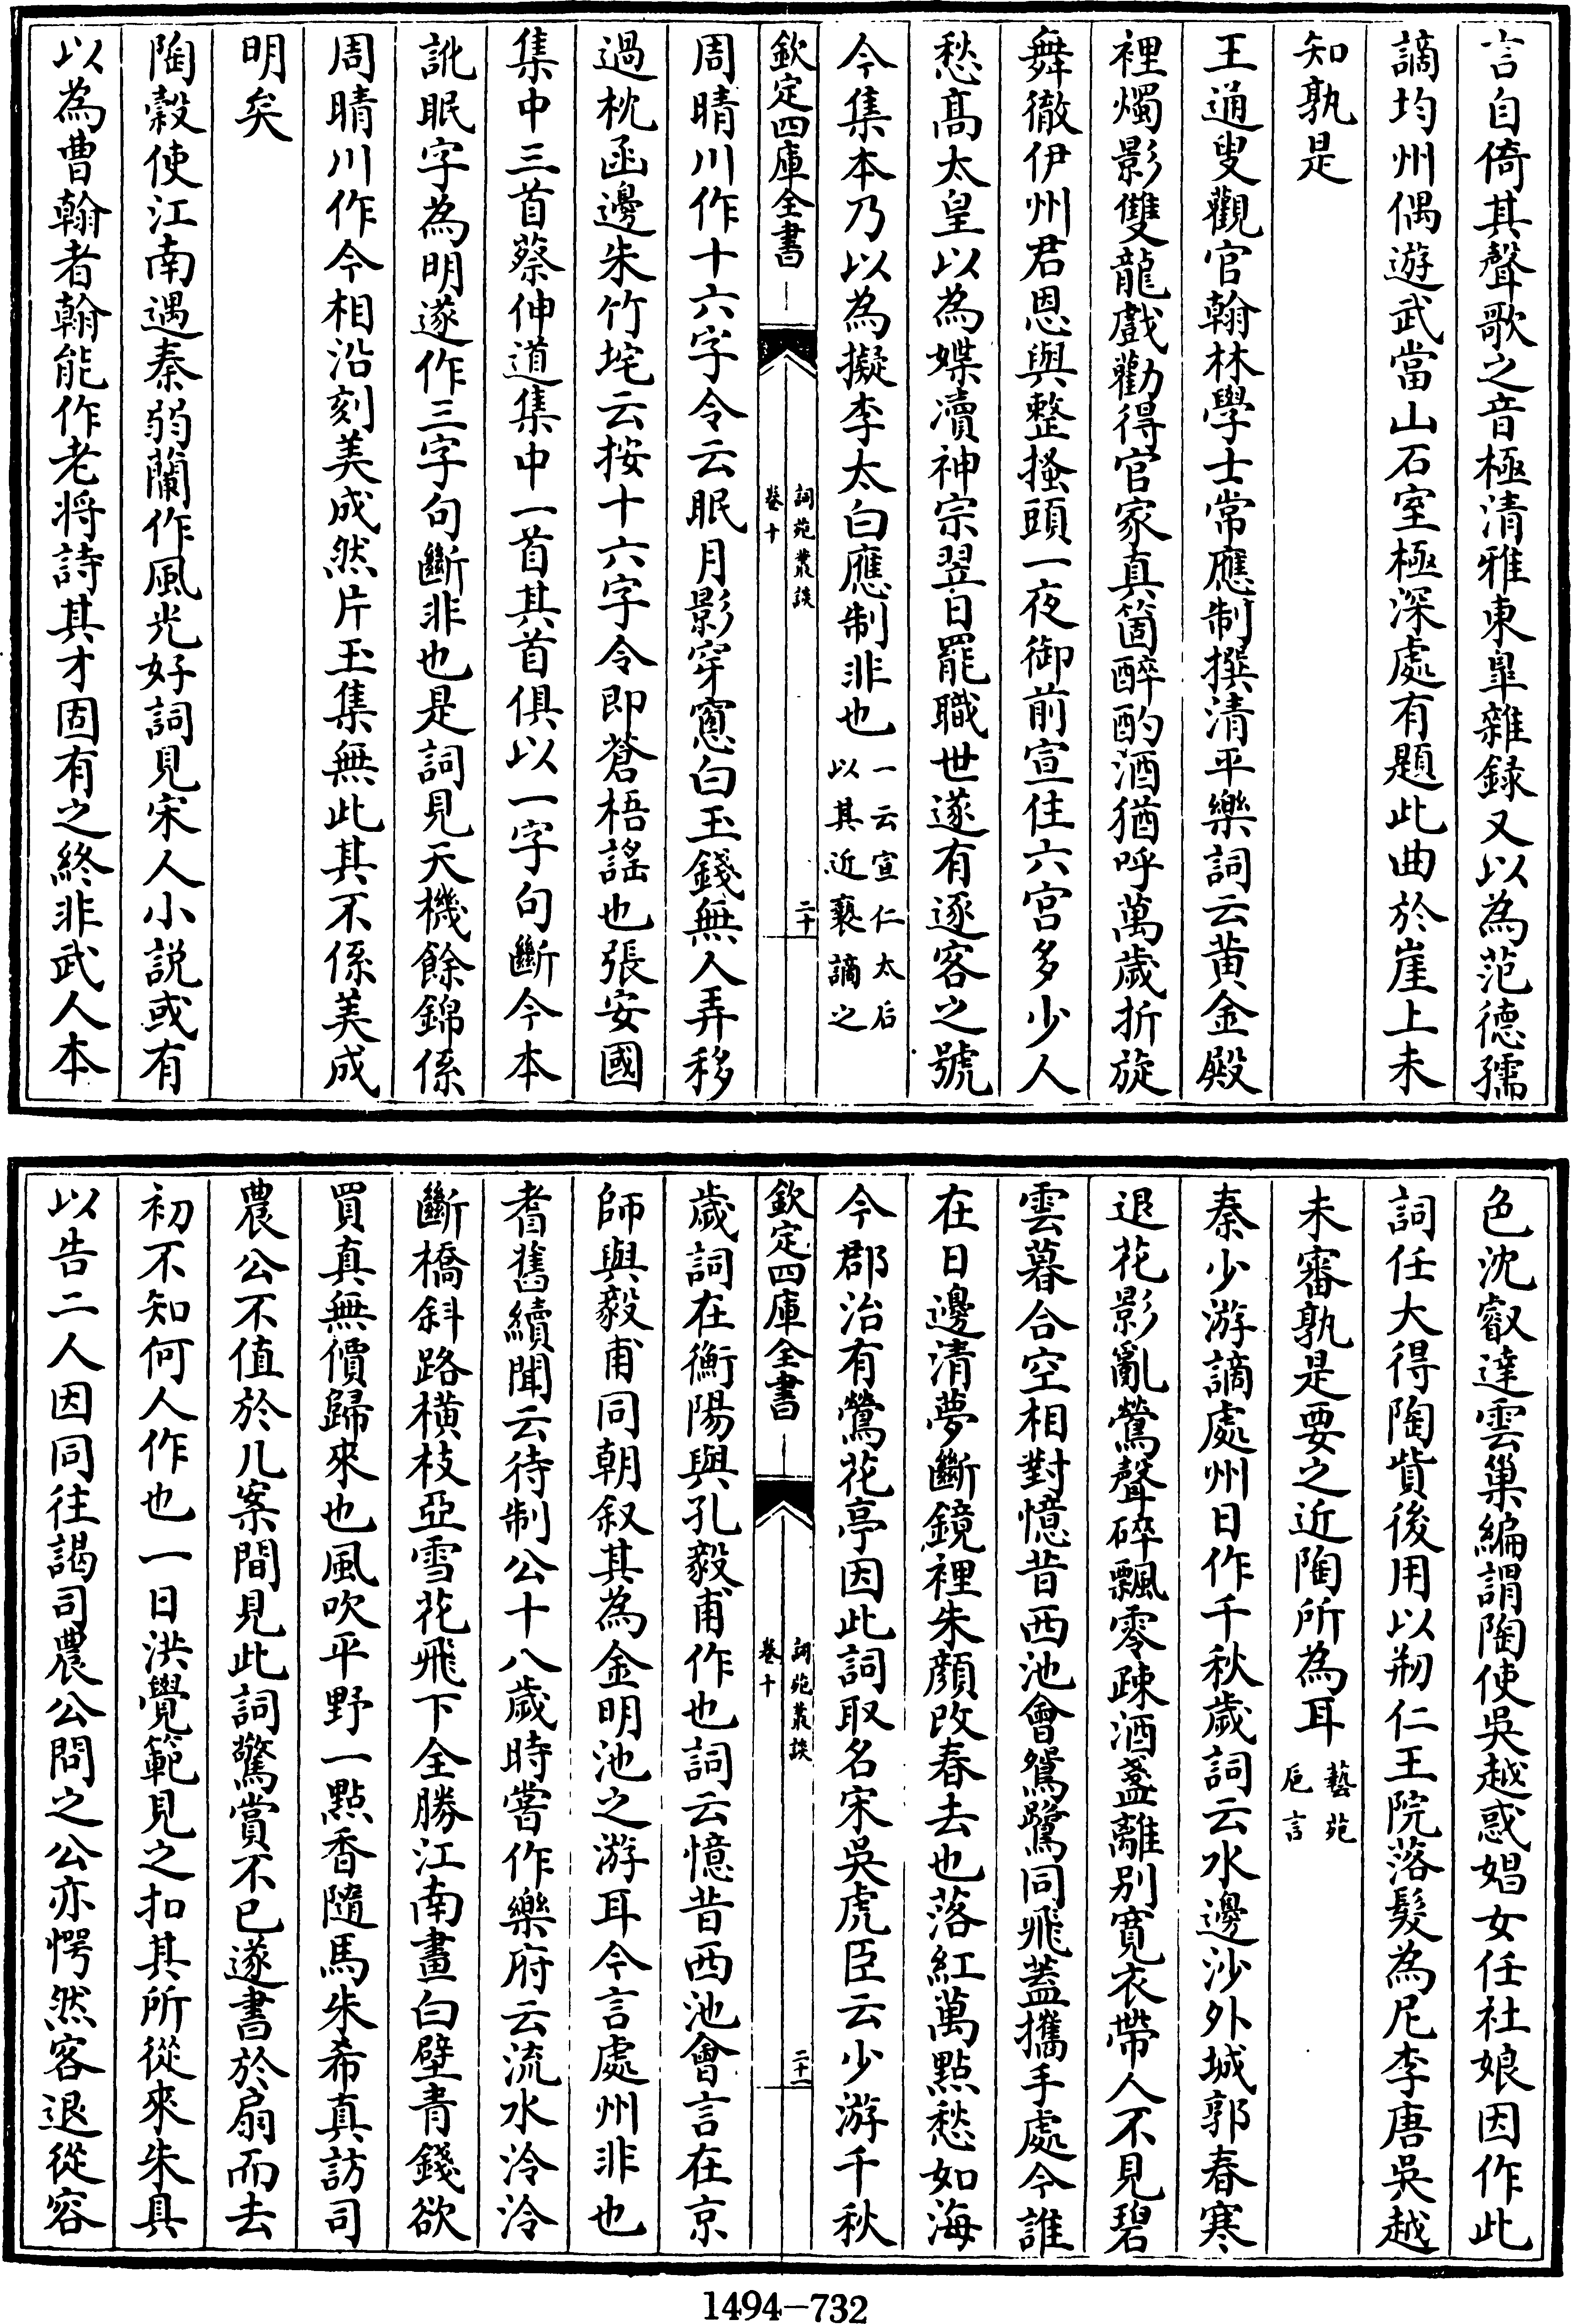 言自倚其聲歌之音極清雅東臯雜録又以為范德孺
謫均州偶遊武當山石室極深處有題此曲於崖上未
知孰是
王通叟觀官翰林學士常應制撰清平樂詞云黄金殿
裡燭影雙龍戲勸得官家真箇醉酌酒猶呼萬歲折旋
舞徹伊州君恩與整搔頭一夜御前宣住六宫多少人
愁髙太皇以為媟瀆神宗翌日罷職世遂有逐客之號
今集本乃以為擬李太白應制非也一云宣仁太后以其近褻謫之
欽定四庫全書
詞苑叢談
卷十
二十
周晴川作十六字令云眠月影穿窻白玉錢無人弄移
過枕函邊朱竹垞云按十六字令即蒼梧謡也張安國
集中三首蔡伸道集中一首其首俱以一字句斷今本
訛眠字為明遂作三字句斷非也是詞見天機餘錦係
周晴川作今相沿刻美成然片玉集無此其不係美成
明矣
陶穀使江南遇秦弱蘭作風光好詞見宋人小説或有
以為曹翰者翰能作老將詩其才固有之終非武人本
色沈叡達雲巢編謂陶使吳越惑娼女任社娘因作此
詞任大得陶貲後用以剏仁王院落髮為尼李唐吳越
未審孰是要之近陶所為耳藝苑巵言
秦少游謫處州日作千秋歲詞云水邊沙外城郭春寒
退花影亂鶯聲碎飄零疎酒盞離别寛衣帶人不見碧
雲暮合空相對憶昔西池會鴛鷺同飛蓋攜手處今誰
在日邊清夢斷鏡裡朱顔改春去也落紅萬點愁如海
今郡治有鶯花亭因此詞取名宋吳虎臣云少游千秋
欽定四庫全書
詞苑叢談
卷十
二十一
歲詞在衡陽與孔毅甫作也詞云憶昔西池會言在京
師與毅甫同朝叙其為金明池之游耳今言處州非也
耆舊續聞云待制公十八歲時嘗作樂府云流水泠泠
斷橋斜路橫枝亞雪花飛下全勝江南畫白壁青錢欲
買真無價歸來也風吹平野一點香隨馬朱希真訪司
農公不值於几案間見此詞驚賞不已遂書於扇而去
初不知何人作也一日洪覺範見之扣其所從來朱具
以告二人因同往謁司農公問之公亦愕然客退從容
1494-732